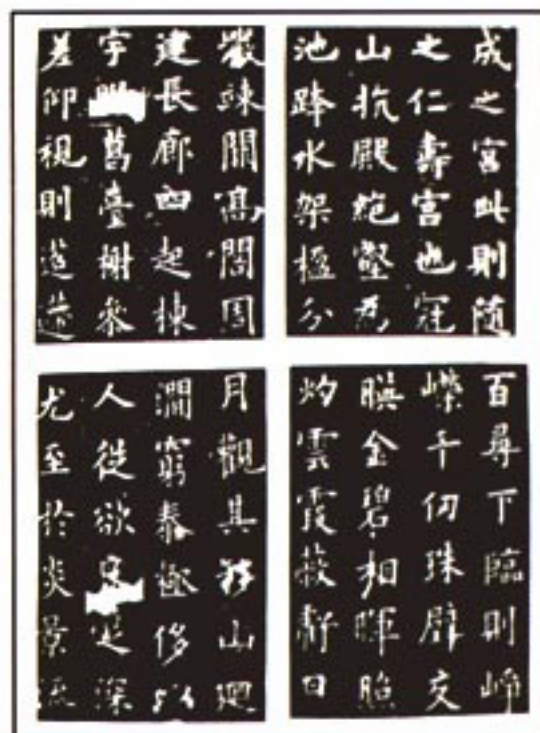 成之宮此則随
之仁壽宮也冠
山抗殿絕壑為
池跨水架楹分
巖竦闕高閣周
建長廊四起棟
宇葛臺榭參
差仰視則迢遰
百尋下臨則崢
嶸千仞珠璧交
暎金碧相暉照
灼雲霞蔽虧日
月觀其移山迴
澗窮泰極侈以
人從欲足深
尤至於炎景流